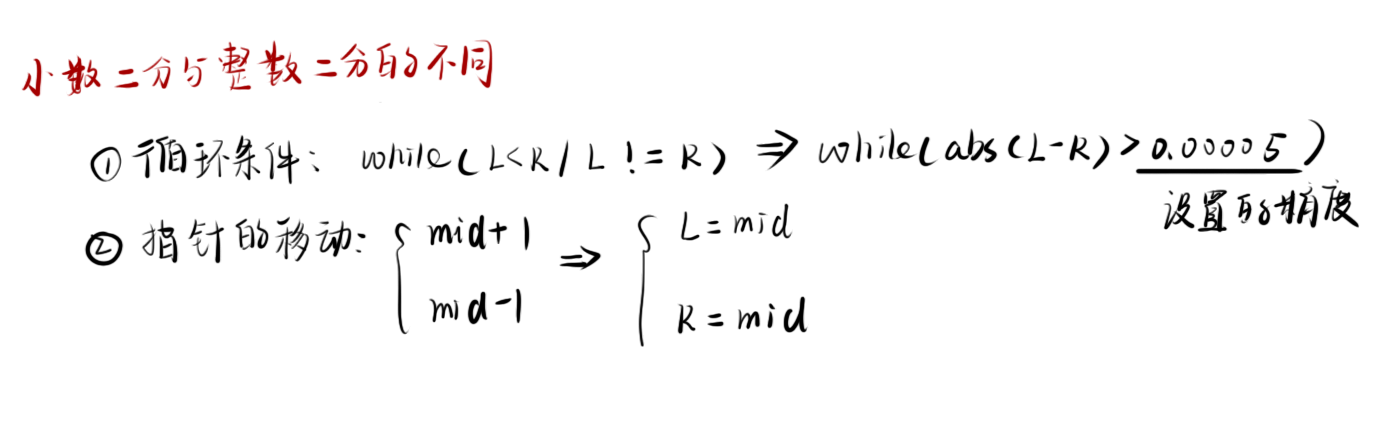 小数二分与整数二分的不同
① 循环条件: while(L<R/L != R) ⇒ while(abs(L-R)>0.000005)
设置的精度
② 指针的移动: { mid+1 ⇒ { L=mid
mid-1 R=mid